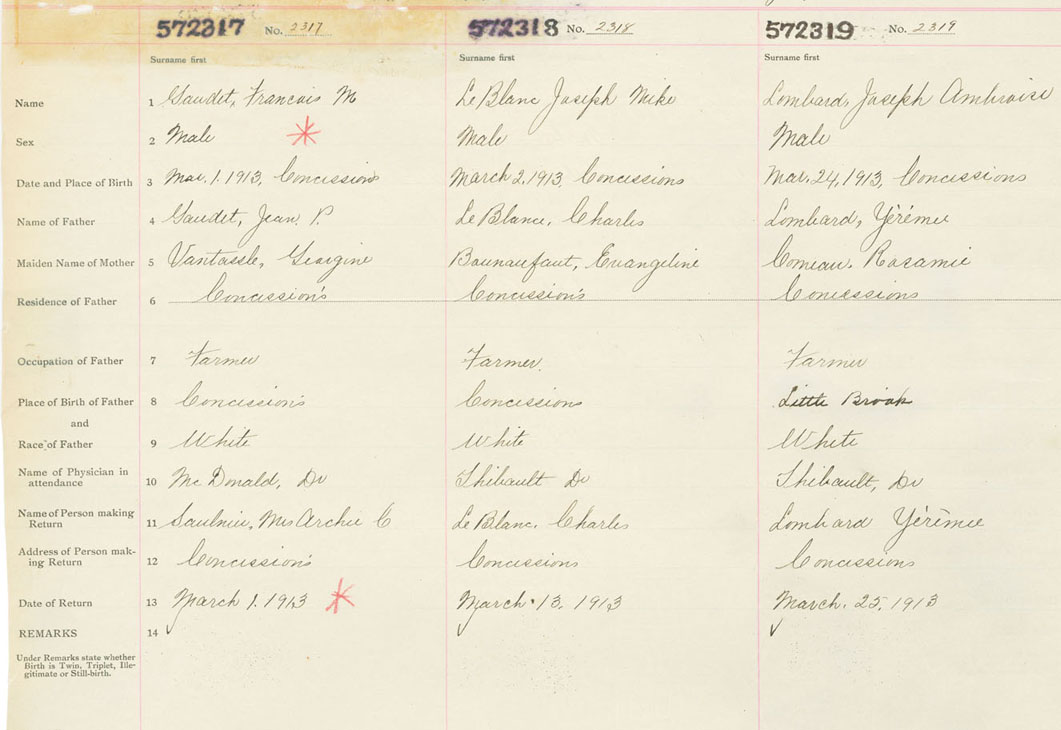 572317 No. 2317 572318 No. 2318 572319 No. 2319
Surname first Surname first Surname first
Name 1 Gaudet, Francois M LeBlanc Joseph Mike Lombard, Joseph Ambroise
Sex 2 Male Male Male
Date and Place of Birth 3 Mar. 1. 1913, Concessions March 2, 1913, Concessions Mar. 24, 1913, Concessions
Name of Father 4 Gaudet, Jean. P. LeBlanc, Charles Lombard, Yérémie
Maiden Name of Mother 5 Vantassle, Georgine Bounaufaut, Evangeline Comeau. Rosamie
Residence of Father 6 Concession's Concession's Concessions
Occupation of Father 7 Farmer Farmer. Farmer
Place of Birth of Father 8 Concession's Concessions Little Brook
and
Race of Father 9 White White White
Name of Physician in
attendance 10 McDonald, Dr Thibault Dr Thibault, Dr
Name of Person making
Return 11 Saulnier, Mrs Archie C LeBlanc, Charles Lombard Yérémie
Address of Person mak-
ing Return 12 Concession's Concessions Concessions
Date of Return 13 March 1. 1913 March. 13, 1913 March. 25, 1913
REMARKS 14
Under Remarks state whether
Birth is Twin, Triplet, Ille-
gitimate or Still-birth.